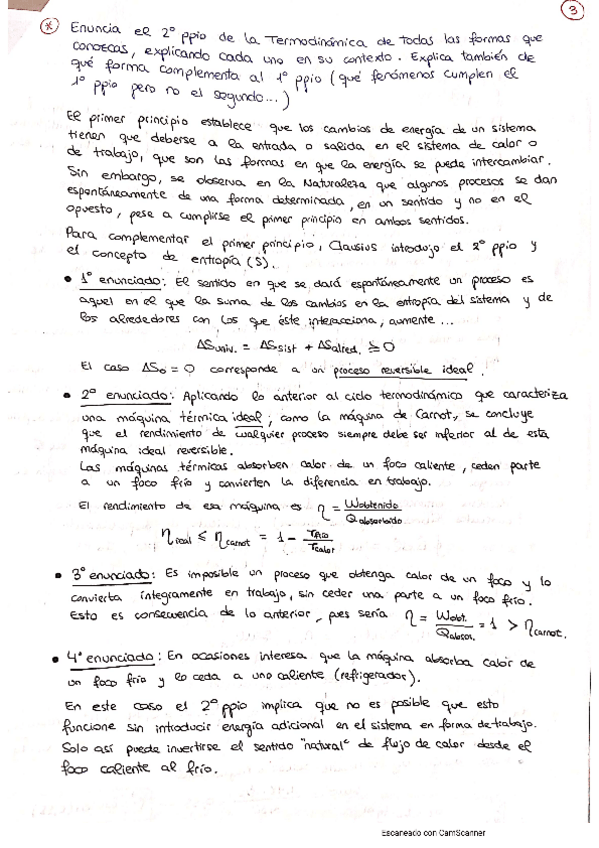 3
* Enuncia el 2º ppio de la Termodinámica de todas las formas que
conozcas, explicando cada uno en su contexto. Explica también de
qué forma complementa al 1º ppio (qué fenómenos cumplen el
1º ppio pero no el segundo...)
El primer principio establece que los cambios de energía de un sistema
tienen que deberse a la entrada o salida en el sistema de calor o
de trabajo, que son las formas en que la energía se puede intercambiar.
Sin embargo, se observa en la Naturaleza que algunos procesos se dan
espontáneamente de una forma determinada, en un sentido y no en el
opuesto, pese a cumplirse el primer principio en ambos sentidos.
Para complementar el primer principio, Clausius introdujo el 2º ppio y
el concepto de entropía (S).
• 1º enunciado: El sentido en que se dará espontáneamente un proceso es
aquel en el que la suma de los cambios en la entropía del sistema y de
los alrededores con los que éste interacciona, aumente...
ΔSuniv. = ΔSsist + ΔSalred. ≥ 0
El caso ΔSu = 0 corresponde a un proceso reversible ideal.
• 2º enunciado: Aplicando lo anterior al ciclo termodinámico que caracteriza
una máquina térmica ideal, como la máquina de Carnot, se concluye
que el rendimiento de cualquier proceso siempre debe ser inferior al de esta
máquina ideal reversible.
Las máquinas térmicas absorben calor de un foco caliente, ceden parte
a un foco frío y convierten la diferencia en trabajo.
El rendimiento de esa máquina es η = Wobtenido / Qabsorbido
ηreal ≤ ηcarnot = 1 - TFRIO / Tcalor
• 3º enunciado: Es imposible un proceso que obtenga calor de un foco y lo
convierta íntegramente en trabajo, sin ceder una parte a un foco frío.
Esto es consecuencia de lo anterior, pues sería η = Wobt. / Qabsor. = 1 > ηcarnot.
• 4º enunciado: En ocasiones interesa que la máquina absorba calor de
un foco frío y lo ceda a uno caliente (refrigerador).
En este caso el 2º ppio implica que no es posible que esto
funcione sin introducir energía adicional en el sistema en forma de trabajo.
Solo así puede invertirse el sentido "natural" de flujo de calor desde el
foco caliente al frío.
Escaneado con CamScanner